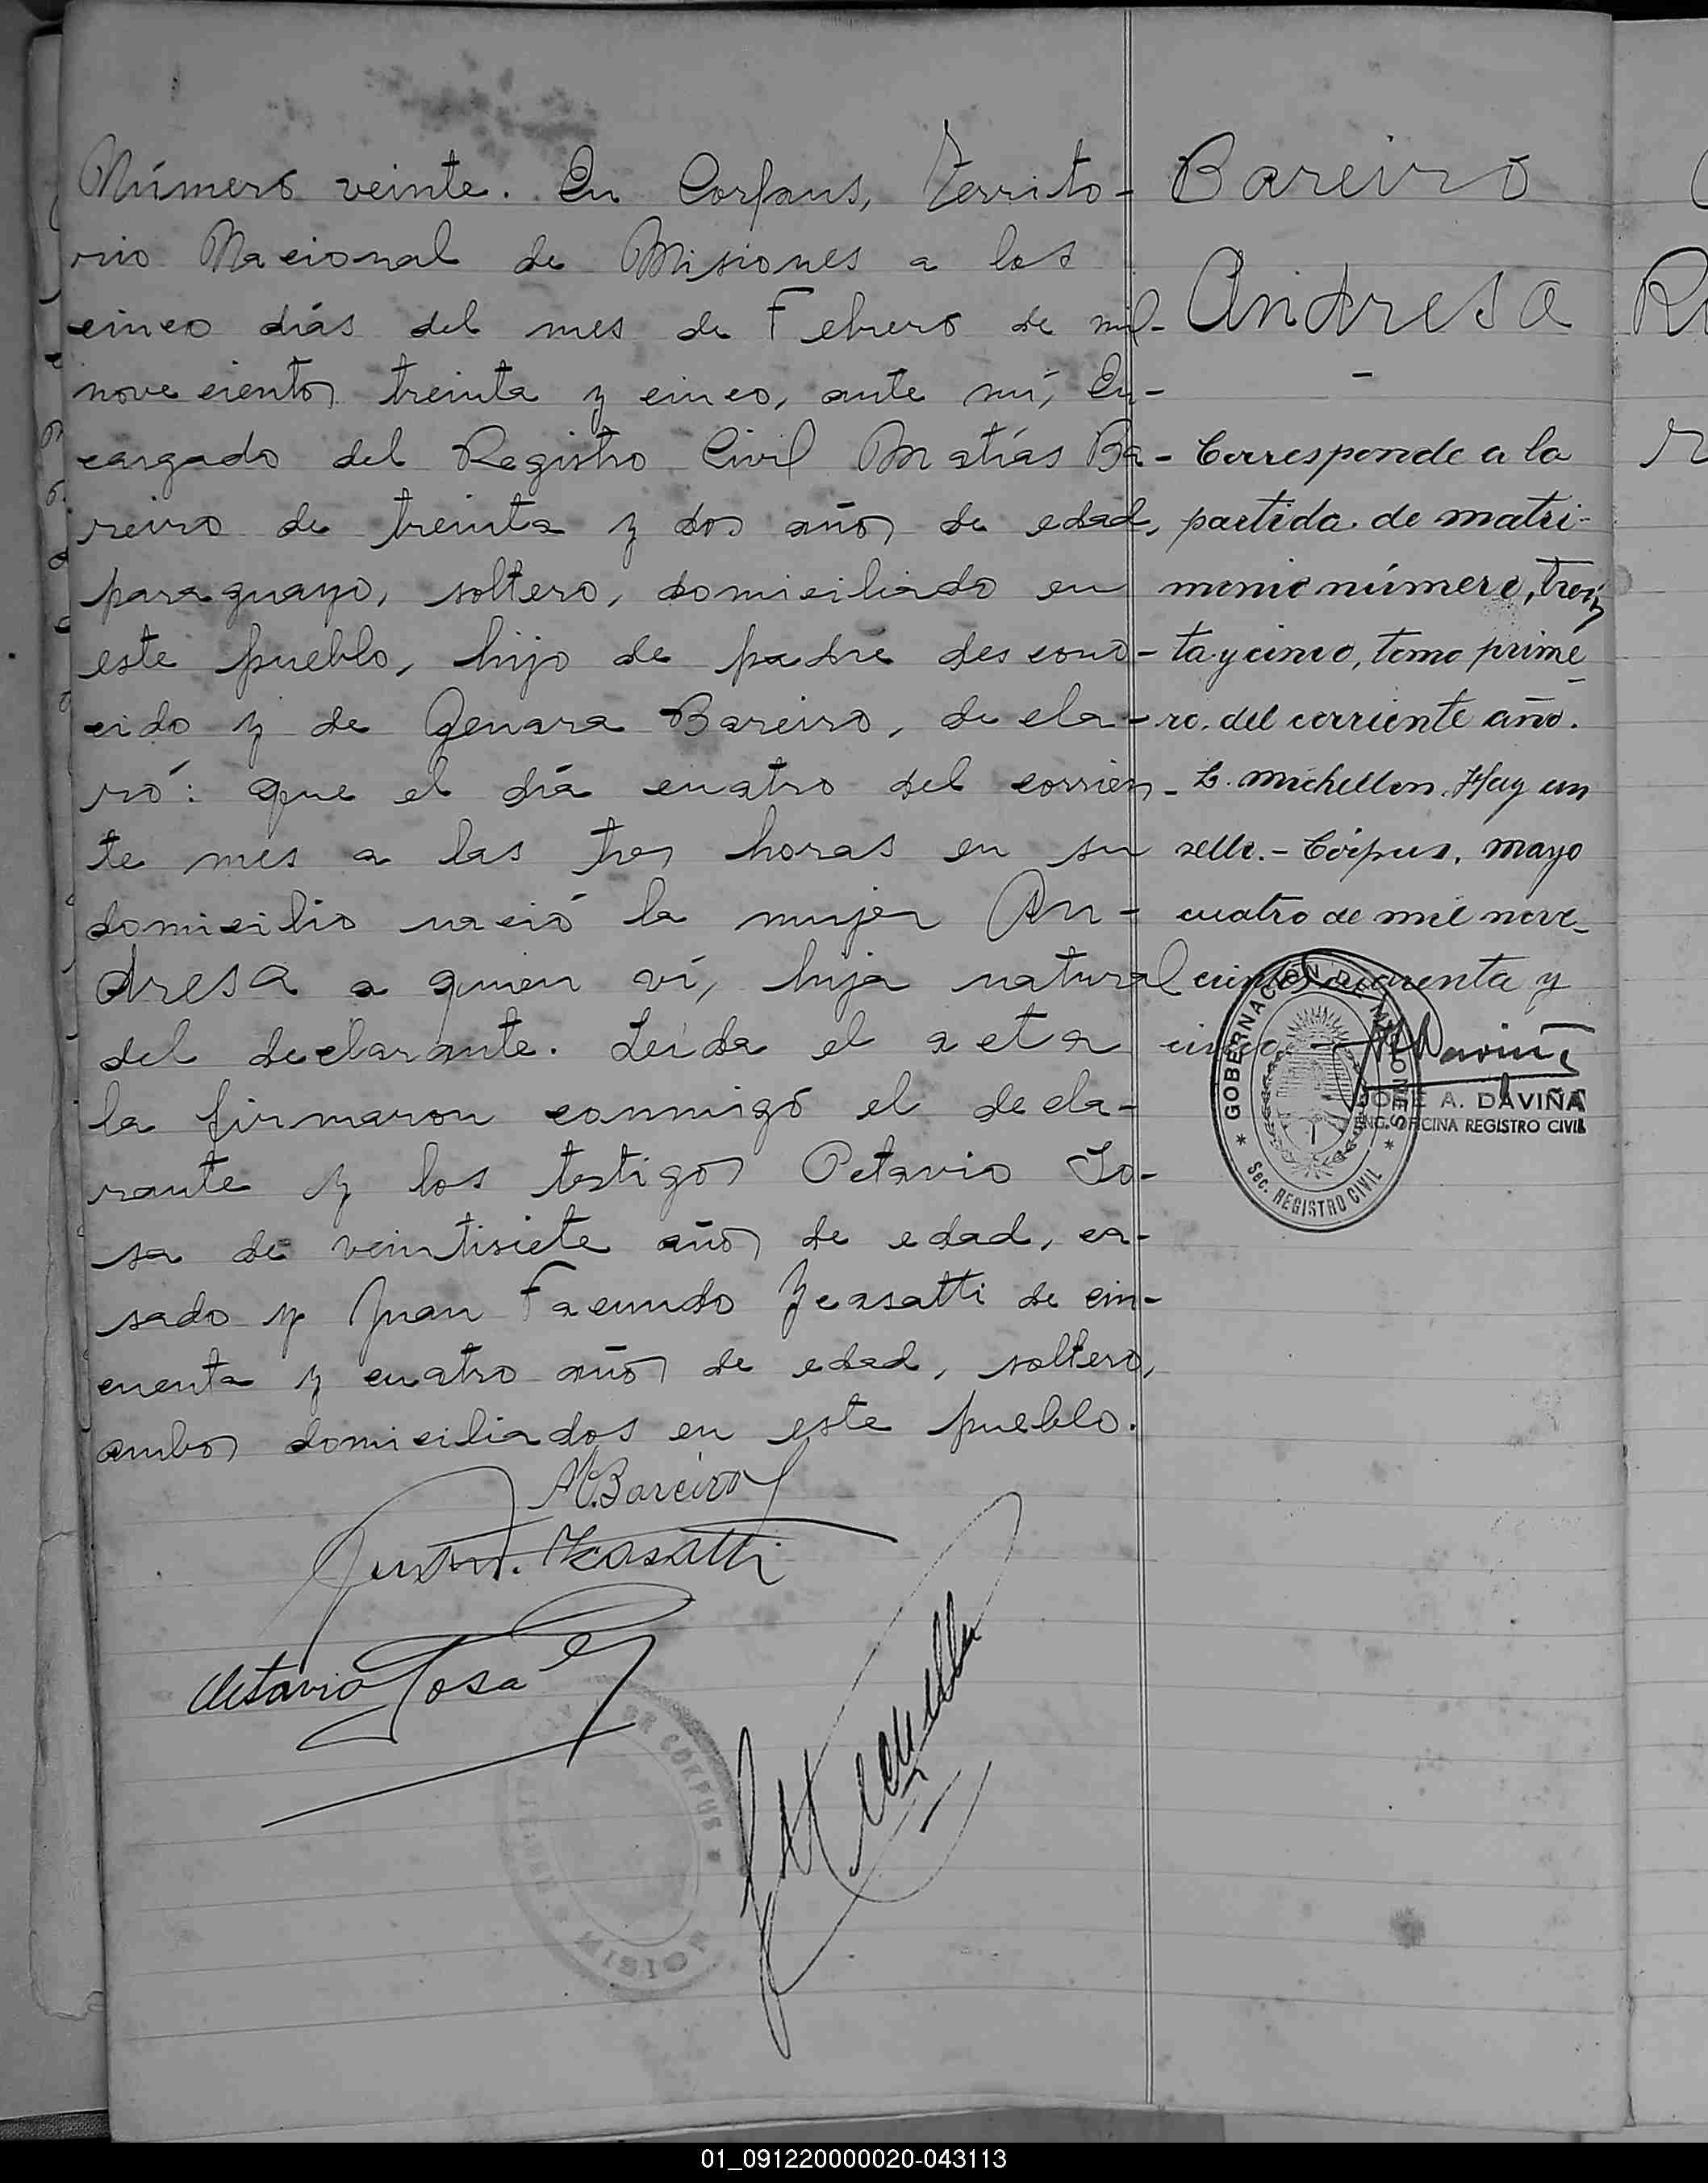 Número veinte. En Corpus, Territo-
rio Nacional de Misiones a los
cinco días del mes de Febrero de mil
novecientos treinta y cinco, ante mí, En-
cargado del Registro Civil Matías Ba-
reiro de treinta y dos años de edad,
paraguayo, soltero, domiciliado en
este pueblo, hijo de padre descono-
cido y de Genara Bareiro, decla-
ró: que el día cuatro del corrien-
te mes a las tres horas en su
domicilio nació la mujer An-
dresa a quien ví, hija natural
del declarante. Leída el acta
la firmaron conmigo el decla-
rante y los testigos Octavio So-
sa de veintisiete años de edad, ca-
sado y Juan Facundo Ycasatti de cin-
cuenta y cuatro años de edad, soltero,
ambos domiciliados en este pueblo.
M. Bareiro
Ycasatti
Octavio Sosa
OR CORPUS
MISION
Bareiro
Andresa
-
Corresponde a la
partida de matri-
monio número, trein
ta y cinco, tomo prime
ro. del corriente año.
L. Michellon. Hay un
sello. - Córpus, mayo
cuatro de mil nove-
cientos cuarenta y
cinco. -
GOBERNACION DE MISIONES
Sec. REGISTRO CIVIL
JORGE A. DAVIÑA
ENC. OFICINA REGISTRO CIVIL
01_091220000020-043113